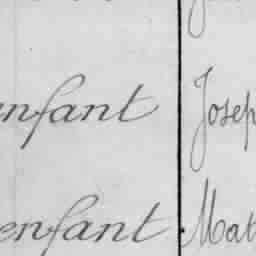 enfant Josep
enfant Mat